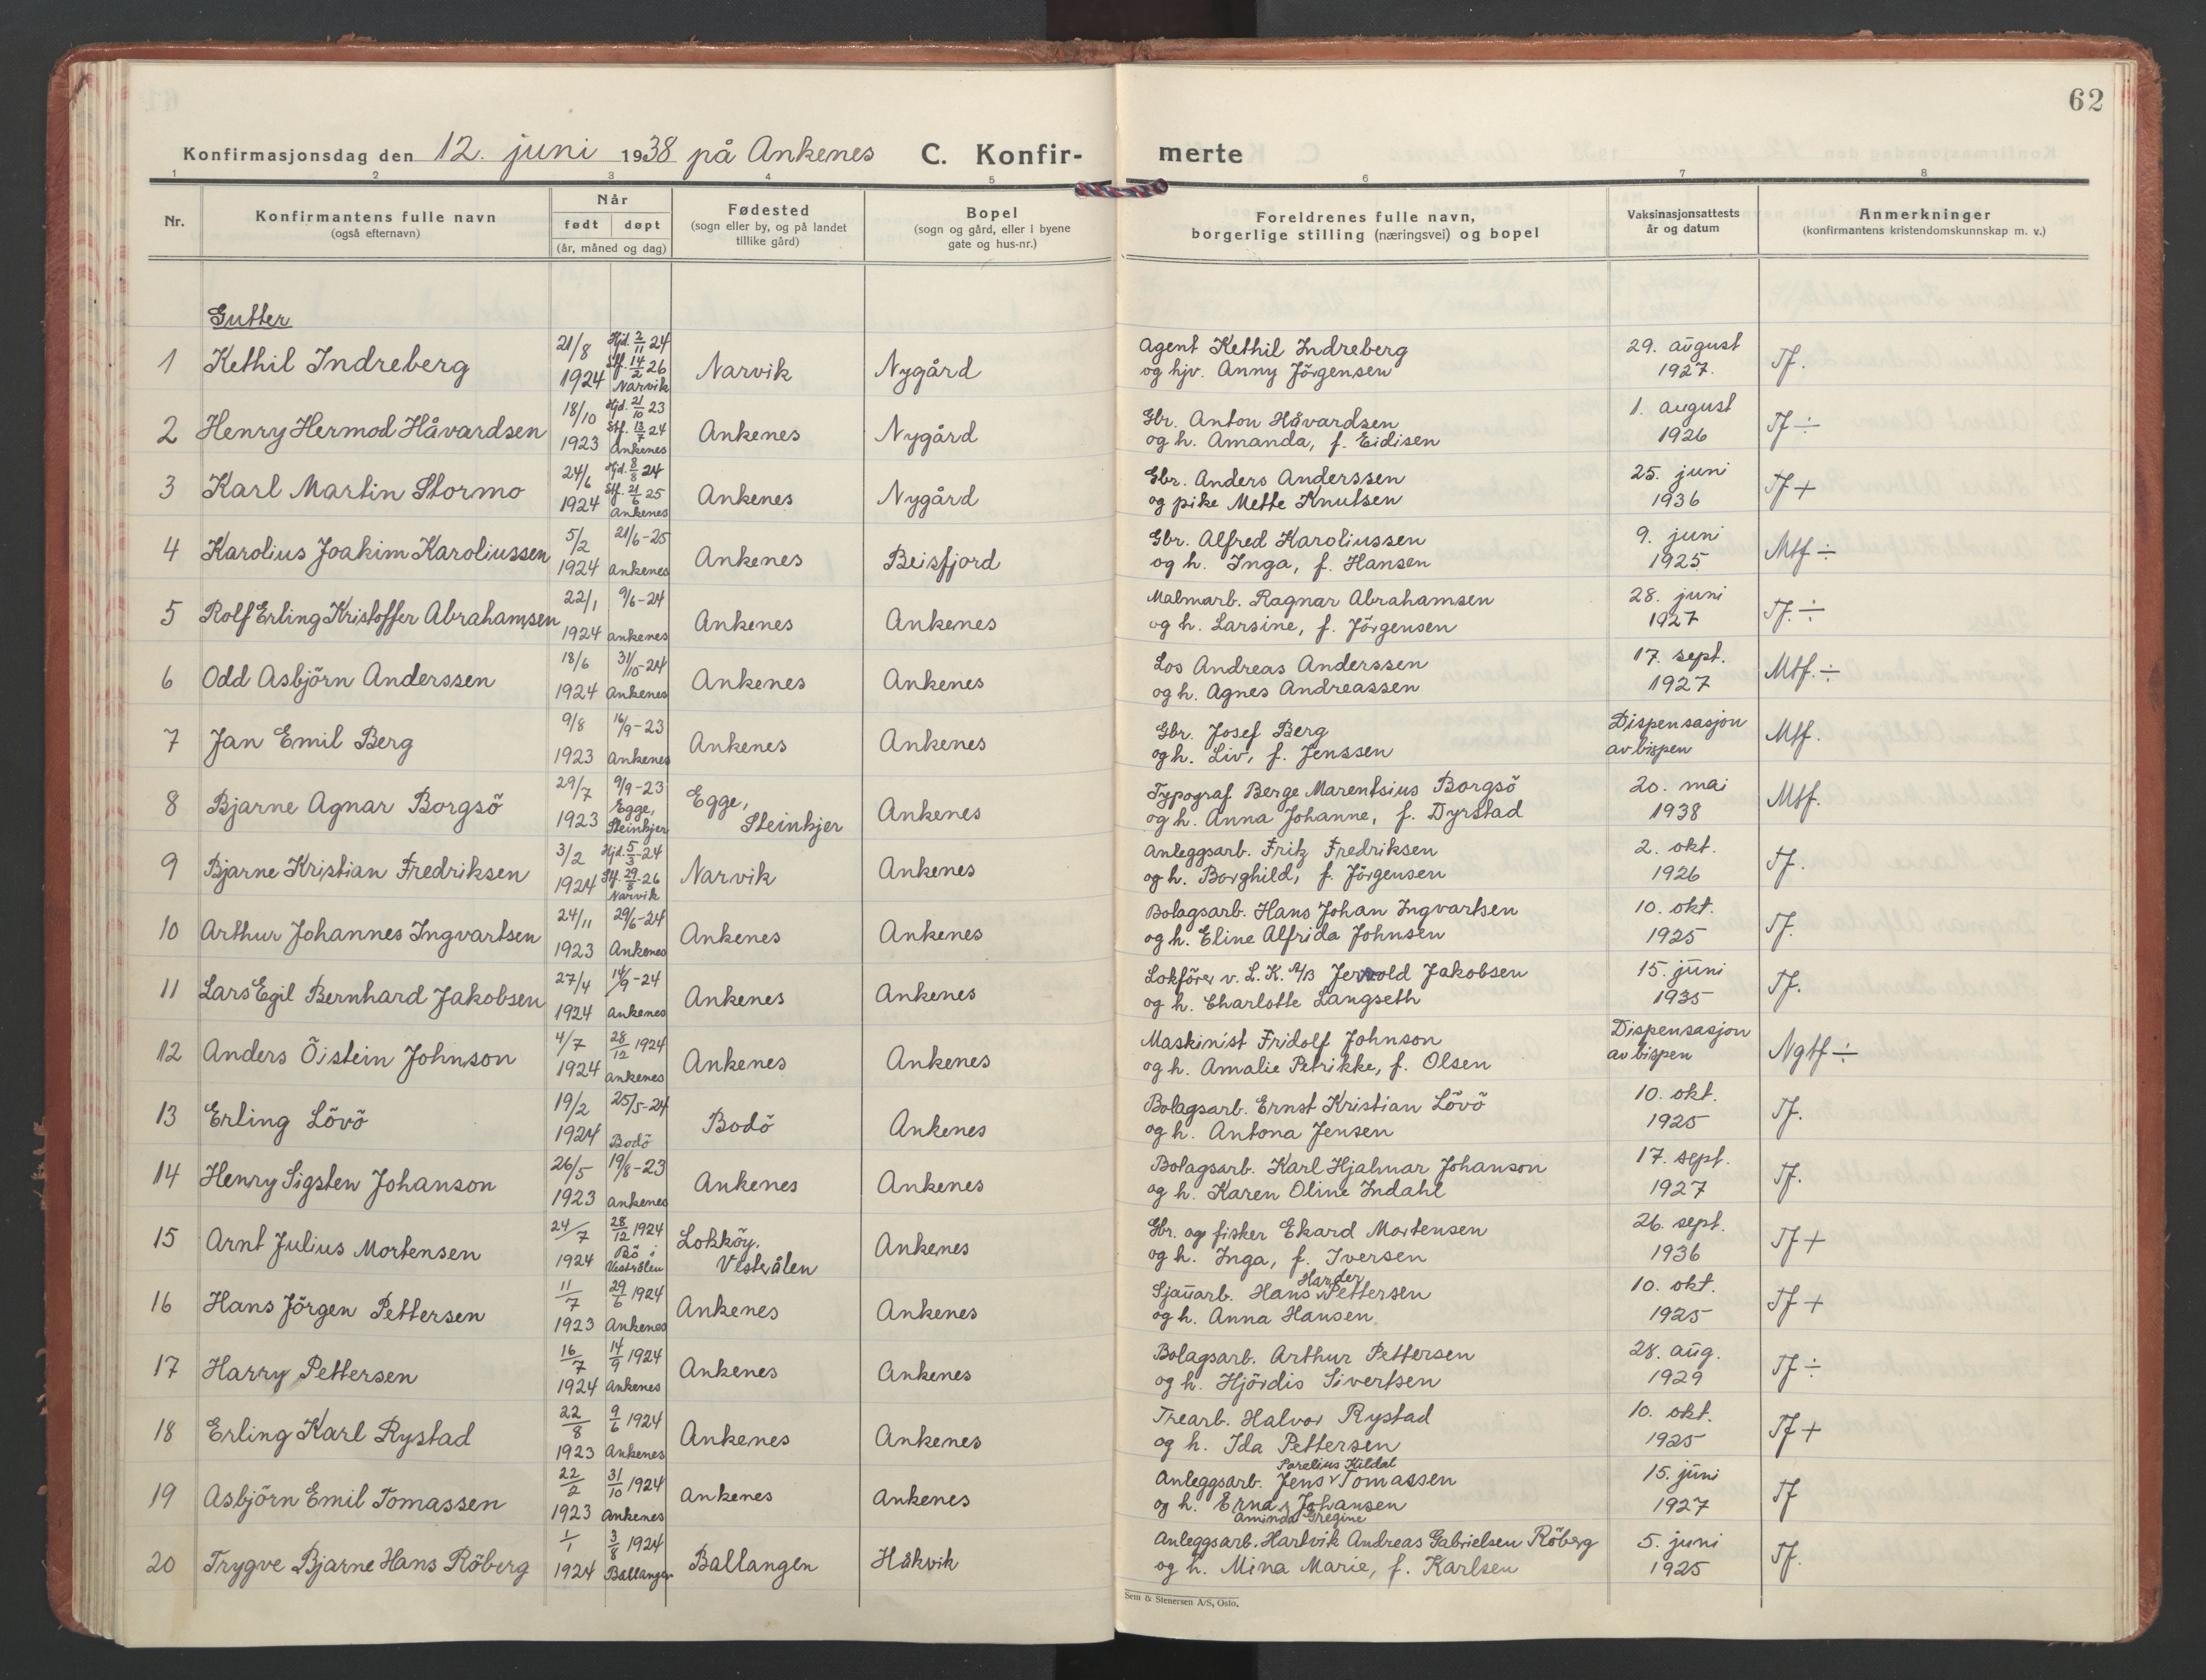 62
Konfirmasjonsdag den 12. juni 1938 på Ankenes C. Konfir-merte
1 2 3 4 5 6 7 8
Nr. Konfirmantens fulle navn (også efternavn) Når født døpt (år, måned og dag) Fødested (sogn eller by, og på landet tillike gård) Bopel (sogn og gård, eller i byene gate og hus-nr.) Foreldrenes fulle navn, borgerlige stilling (næringsvei) og bopel Vaksinasjonsattests år og datum Anmerkninger (konfirmantens kristendomskunnskap m. v.)
Gutter
1 Kethil Indreberg 21/8 1924 Hjd. 2/11 24 Stf. 14/2 26 Narvik Narvik Nygård Agent Kethil Indreberg og hjv. Anny Jörgensen 29. august 1927. Tf.
2 Henry Hermod Håvardsen 18/10 1923 Hjd. 21/10 23 Stf. 13/7 24 Ankenes Ankenes Nygård Gbr. Anton Håvardsen og h. Amanda, f. Eidisen 1. august 1926 Tf ÷
3 Karl Martin Stormo 24/6 1924 Hjd. 8/8 24 Stf. 21/6 25 Ankenes Ankenes Nygård Gbr. Anders Anderssen og pike Mette Knutsen 25. juni 1936 Tf +
4 Karolius Joakim Karoliussen 5/2 1924 21/6-25 Ankenes Ankenes Beisfjord Gbr. Alfred Karoliussen og h. Inga, f. Hansen 9. juni 1925 Mtf ÷
5 Rolf Erling Kristoffer Abrahamsen 22/1 1924 9/6-24 Ankenes Ankenes Ankenes Malmarb. Ragnar Abrahamsen og h. Larsine, f. Jörgensen 28. juni 1927 Tf. ÷
6 Odd Asbjörn Anderssen 18/6 1924 31/10-24 Ankenes Ankenes Ankenes Los Andreas Anderssen og h. Agnes Andreassen 17. sept. 1927 Mtf. ÷
7 Jan Emil Berg 9/8 1923 16/9-23 Ankenes Ankenes Ankenes Gbr. Josef Berg og h. Liv, f. Jenssen Dispensasjon av bispen Mtf.
8 Bjarne Agnar Borgsö 29/7 1923 9/9-23 Egge, Steinkjer Egge, Steinkjer Ankenes Typograf Berge Marentsius Borgsö og h. Anna Johanne, f. Dyrstad 20. mai 1938 Mtf.
9 Bjarne Kristian Fredriksen 3/2 1924 Hjd. 5/3-24 Stf. 29/8-26 Narvik Narvik Ankenes Anleggsarb. Fritz Fredriksen og h. Borghild, f. Jörgensen 2. okt. 1926 Tf.
10 Arthur Johannes Ingvartsen 24/11 1923 29/6-24 Ankenes Ankenes Ankenes Bolagsarb. Hans Johan Ingvartsen og h. Eline Alfrida Johnsen 10. okt. 1925 Tf.
11 Lars Egil Bernhard Jakobsen 27/4 1924 14/9-24 Ankenes Ankenes Ankenes Lokförer v. L. K. A/B Jakobsen og h. Charlotte Langseth 15. juni 1935 Tf.
12 Anders Öistein Johnson 4/7 1924 28/12 1924 Ankenes Ankenes Ankenes Maskinist Fridolf Johnson og h. Amalie Petrikke, f. Olsen Dispensasjon av bispen Ngtf ÷
13 Erling Lövö 19/2 1924 25/5-24 Bodö Bodö Ankenes Bolagsarb. Ernst Kristian Lövö og h. Antona Jensen 10. okt. 1925 Tf.
14 Henry Sigsten Johanson 26/5 1923 19/8-23 Ankenes Ankenes Ankenes Bolagsarb. Karl Hjalmar Johanson og h. Karen Oline Indahl 17. sept. 1927 Tf.
15 Arnt Julius Mortensen 24/7 1924 28/12 1924 Bö i Vesterålen Lokköy. Vesterålen Ankenes Gbr. og fisker Ekard Mortensen og h. Inga, f. Iversen 26. sept. 1936 Tf +
16 Hans Jörgen Pettersen 11/7 1923 29/6 1924 Ankenes Ankenes Ankenes Sjauarb. Hans Harder Pettersen og h. Anna Hansen 10. okt. 1925 Tf +
17 Harry Pettersen 16/7 1924 14/9 1924 Ankenes Ankenes Ankenes Bolagsarb. Arthur Pettersen og h. Hjördis Sivertsen 28. aug. 1929 Tf ÷
18 Erling Karl Rystad 22/8 1923 9/6 1924 Ankenes Ankenes Ankenes Trearb. Halvor Rystad og h. Ida Pettersen 10. okt. 1925 Tf +
19 Asbjörn Emil Tomassen 22/2 1923 31/10 1924 Ankenes Ankenes Ankenes Anleggsarb. Jens Parelius Kildal Tomassen og h. Erna Aminda Gregine Johansen 15. juni 1927 Tf
20 Trygve Bjarne Hans Röberg 1/1 1924 3/8 1924 Ballangen Ballangen Håkvik Anleggsarb. Hartvik Andreas Gabrielsen Röberg og h. Mina Marie, f. Karlsen 5. juni 1925 Tf.
Sem & Stenersen A/S, Oslo.